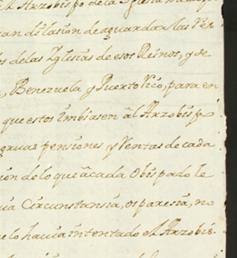 el Arzobispo de la Iglesia
gran dilacion de aguardar las Ver
os delas Iglesias de esos Reinos, y de
, Benezuela y Puerto Rico, para en
que estos imbiasen al Arzobispo
pensiones y Rentas de cada
ion de lo que âcada Obispado le
Circunstansia, os paresia, no
elo havia intentado el Arzobis